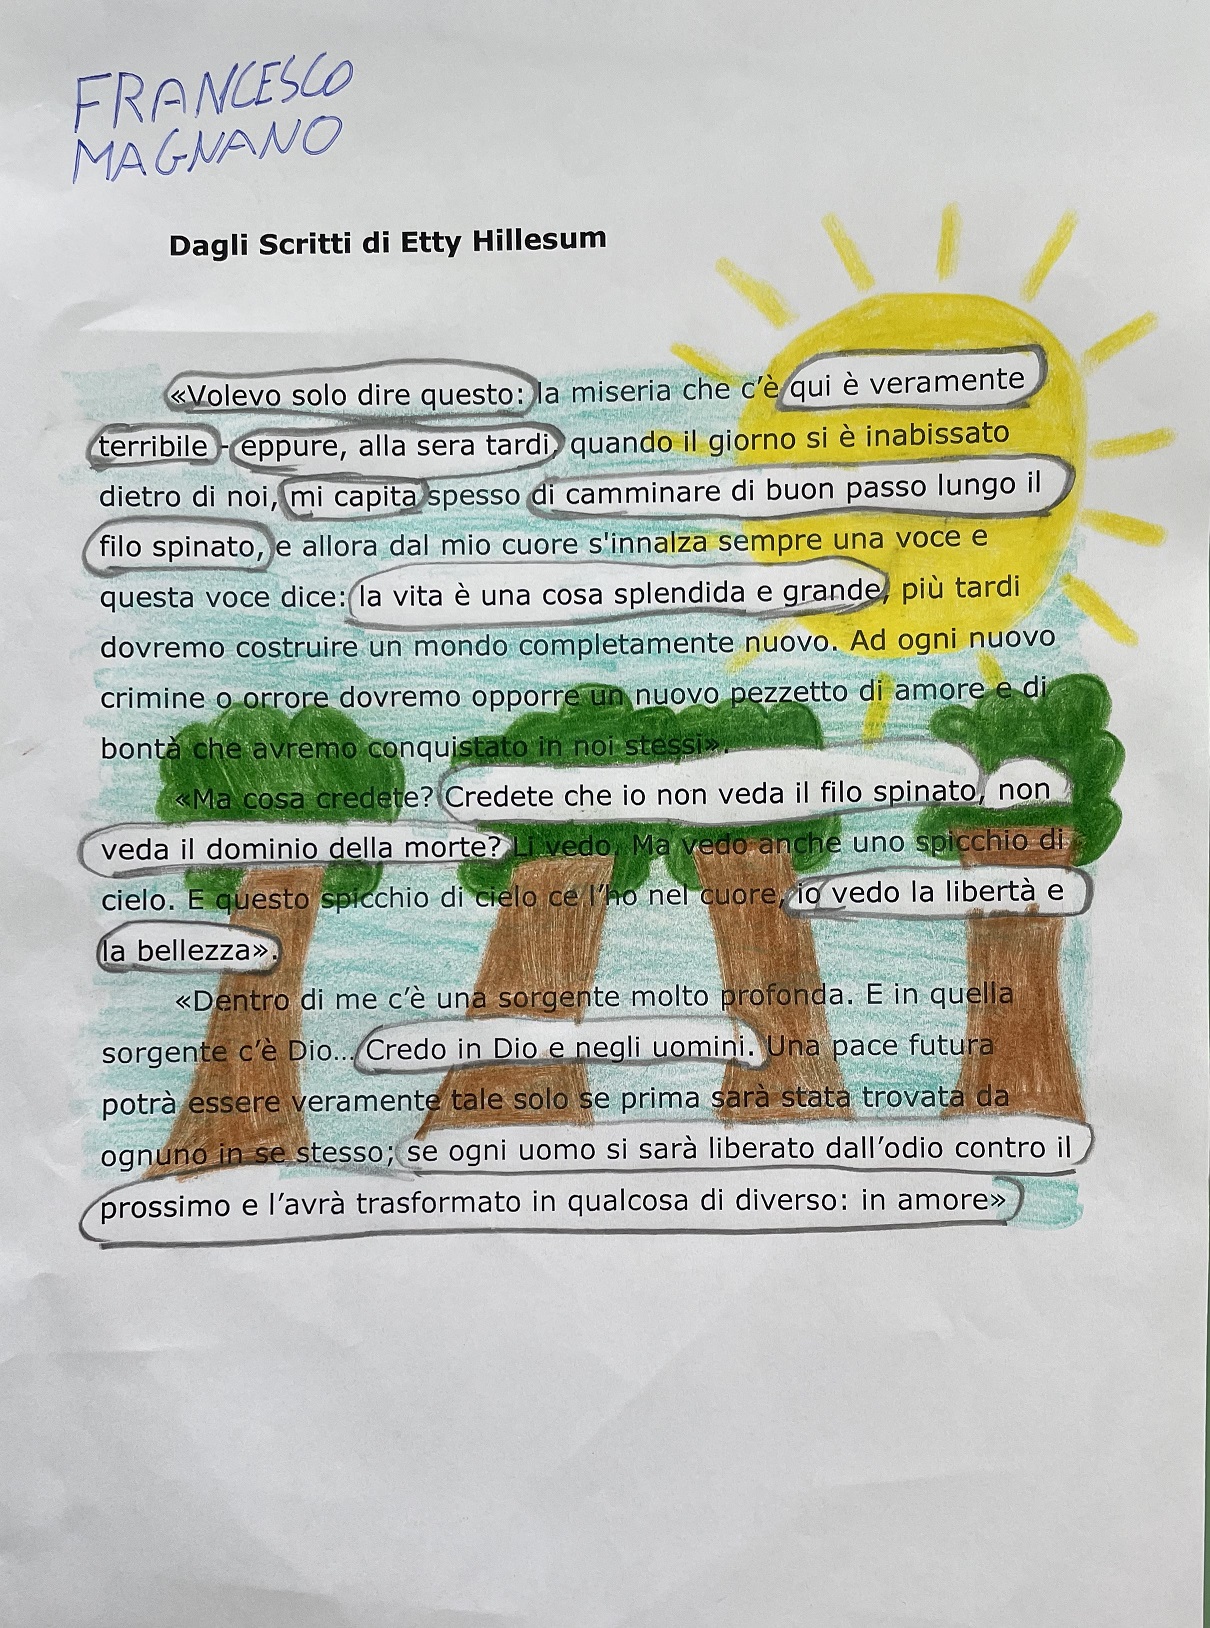 FRANCESCO
MAGNANO
Dagli Scritti di Etty Hillesum
«Volevo solo dire questo: la miseria che c’è qui è veramente
terribile - eppure, alla sera tardi, quando il giorno si è inabissato
dietro di noi, mi capita spesso di camminare di buon passo lungo il
filo spinato, e allora dal mio cuore s'innalza sempre una voce e
questa voce dice: la vita è una cosa splendida e grande, più tardi
dovremo costruire un mondo completamente nuovo. Ad ogni nuovo
crimine o orrore dovremo opporre un nuovo pezzetto di amore e di
bontà che avremo conquistato in noi stessi».
«Ma cosa credete? Credete che io non veda il filo spinato, non
veda il dominio della morte? Li vedo. Ma vedo anche uno spicchio di
cielo. E questo spicchio di cielo ce l’ho nel cuore, io vedo la libertà e
la bellezza».
«Dentro di me c’è una sorgente molto profonda. E in quella
sorgente c’è Dio... Credo in Dio e negli uomini. Una pace futura
potrà essere veramente tale solo se prima sarà stata trovata da
ognuno in se stesso; se ogni uomo si sarà liberato dall’odio contro il
prossimo e l’avrà trasformato in qualcosa di diverso: in amore»